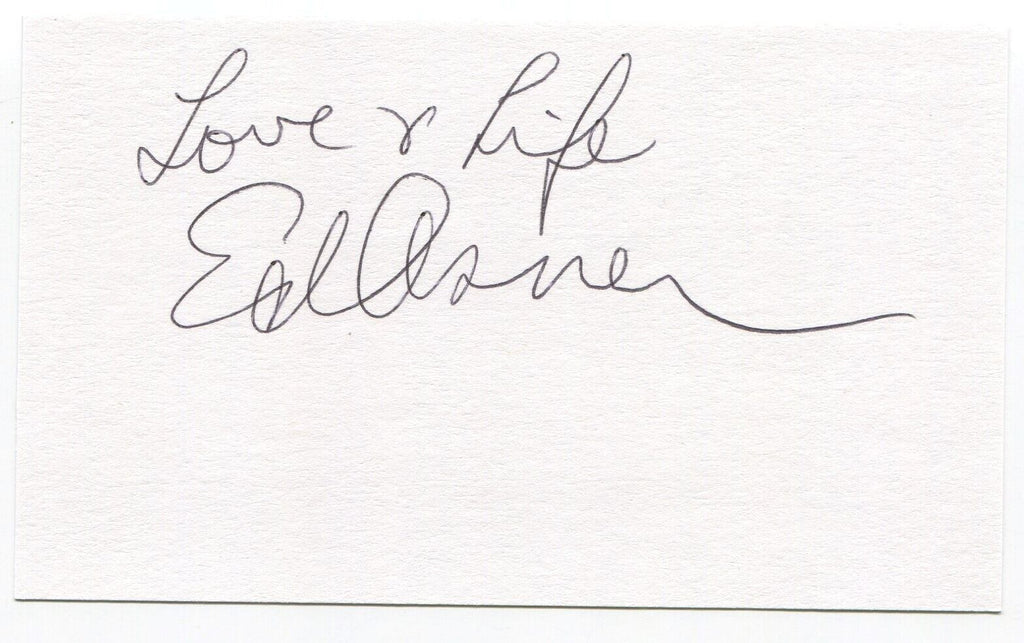 Love & Life
Ed Asner